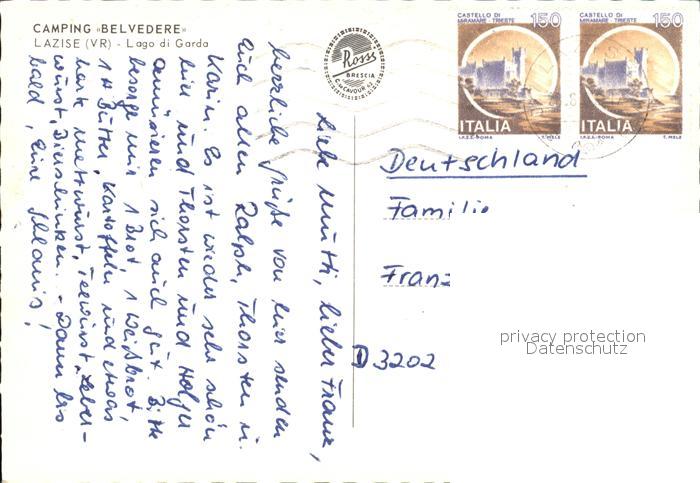 CAMPING «BELVEDERE»
LAZISE (VR) - Lago di Garda
Liebe Mutti, lieber Franz,
herzliche Grüße von hier senden
Euch allen Ralph, Thorsten u.
Karin. Es ist wieder sehr schön
hier und Thorsten und Holger
amüsieren sich auch gut. Bitte
besorge mir 1 Brot, 1 Weißbrot,
1 # Butter, Kartoffeln und etwas
harte Mettwurst, Teewurst, Leber-
wurst, Bierschinken. - Dann bis
bald, Eure
Ross
BRESCIA
C. CAVOUR 42
CASTELLO DI
MIRAMARE TRIESTE
150
ITALIA
I.P.Z.S.-ROMA
T. MELE
CASTELLO DI
MIRAMARE TRIESTE
150
ITALIA
I.P.Z.S.-ROMA
T. MELE
Deutschland
Familie
Franz
D 3202
privacy protection
Datenschutz